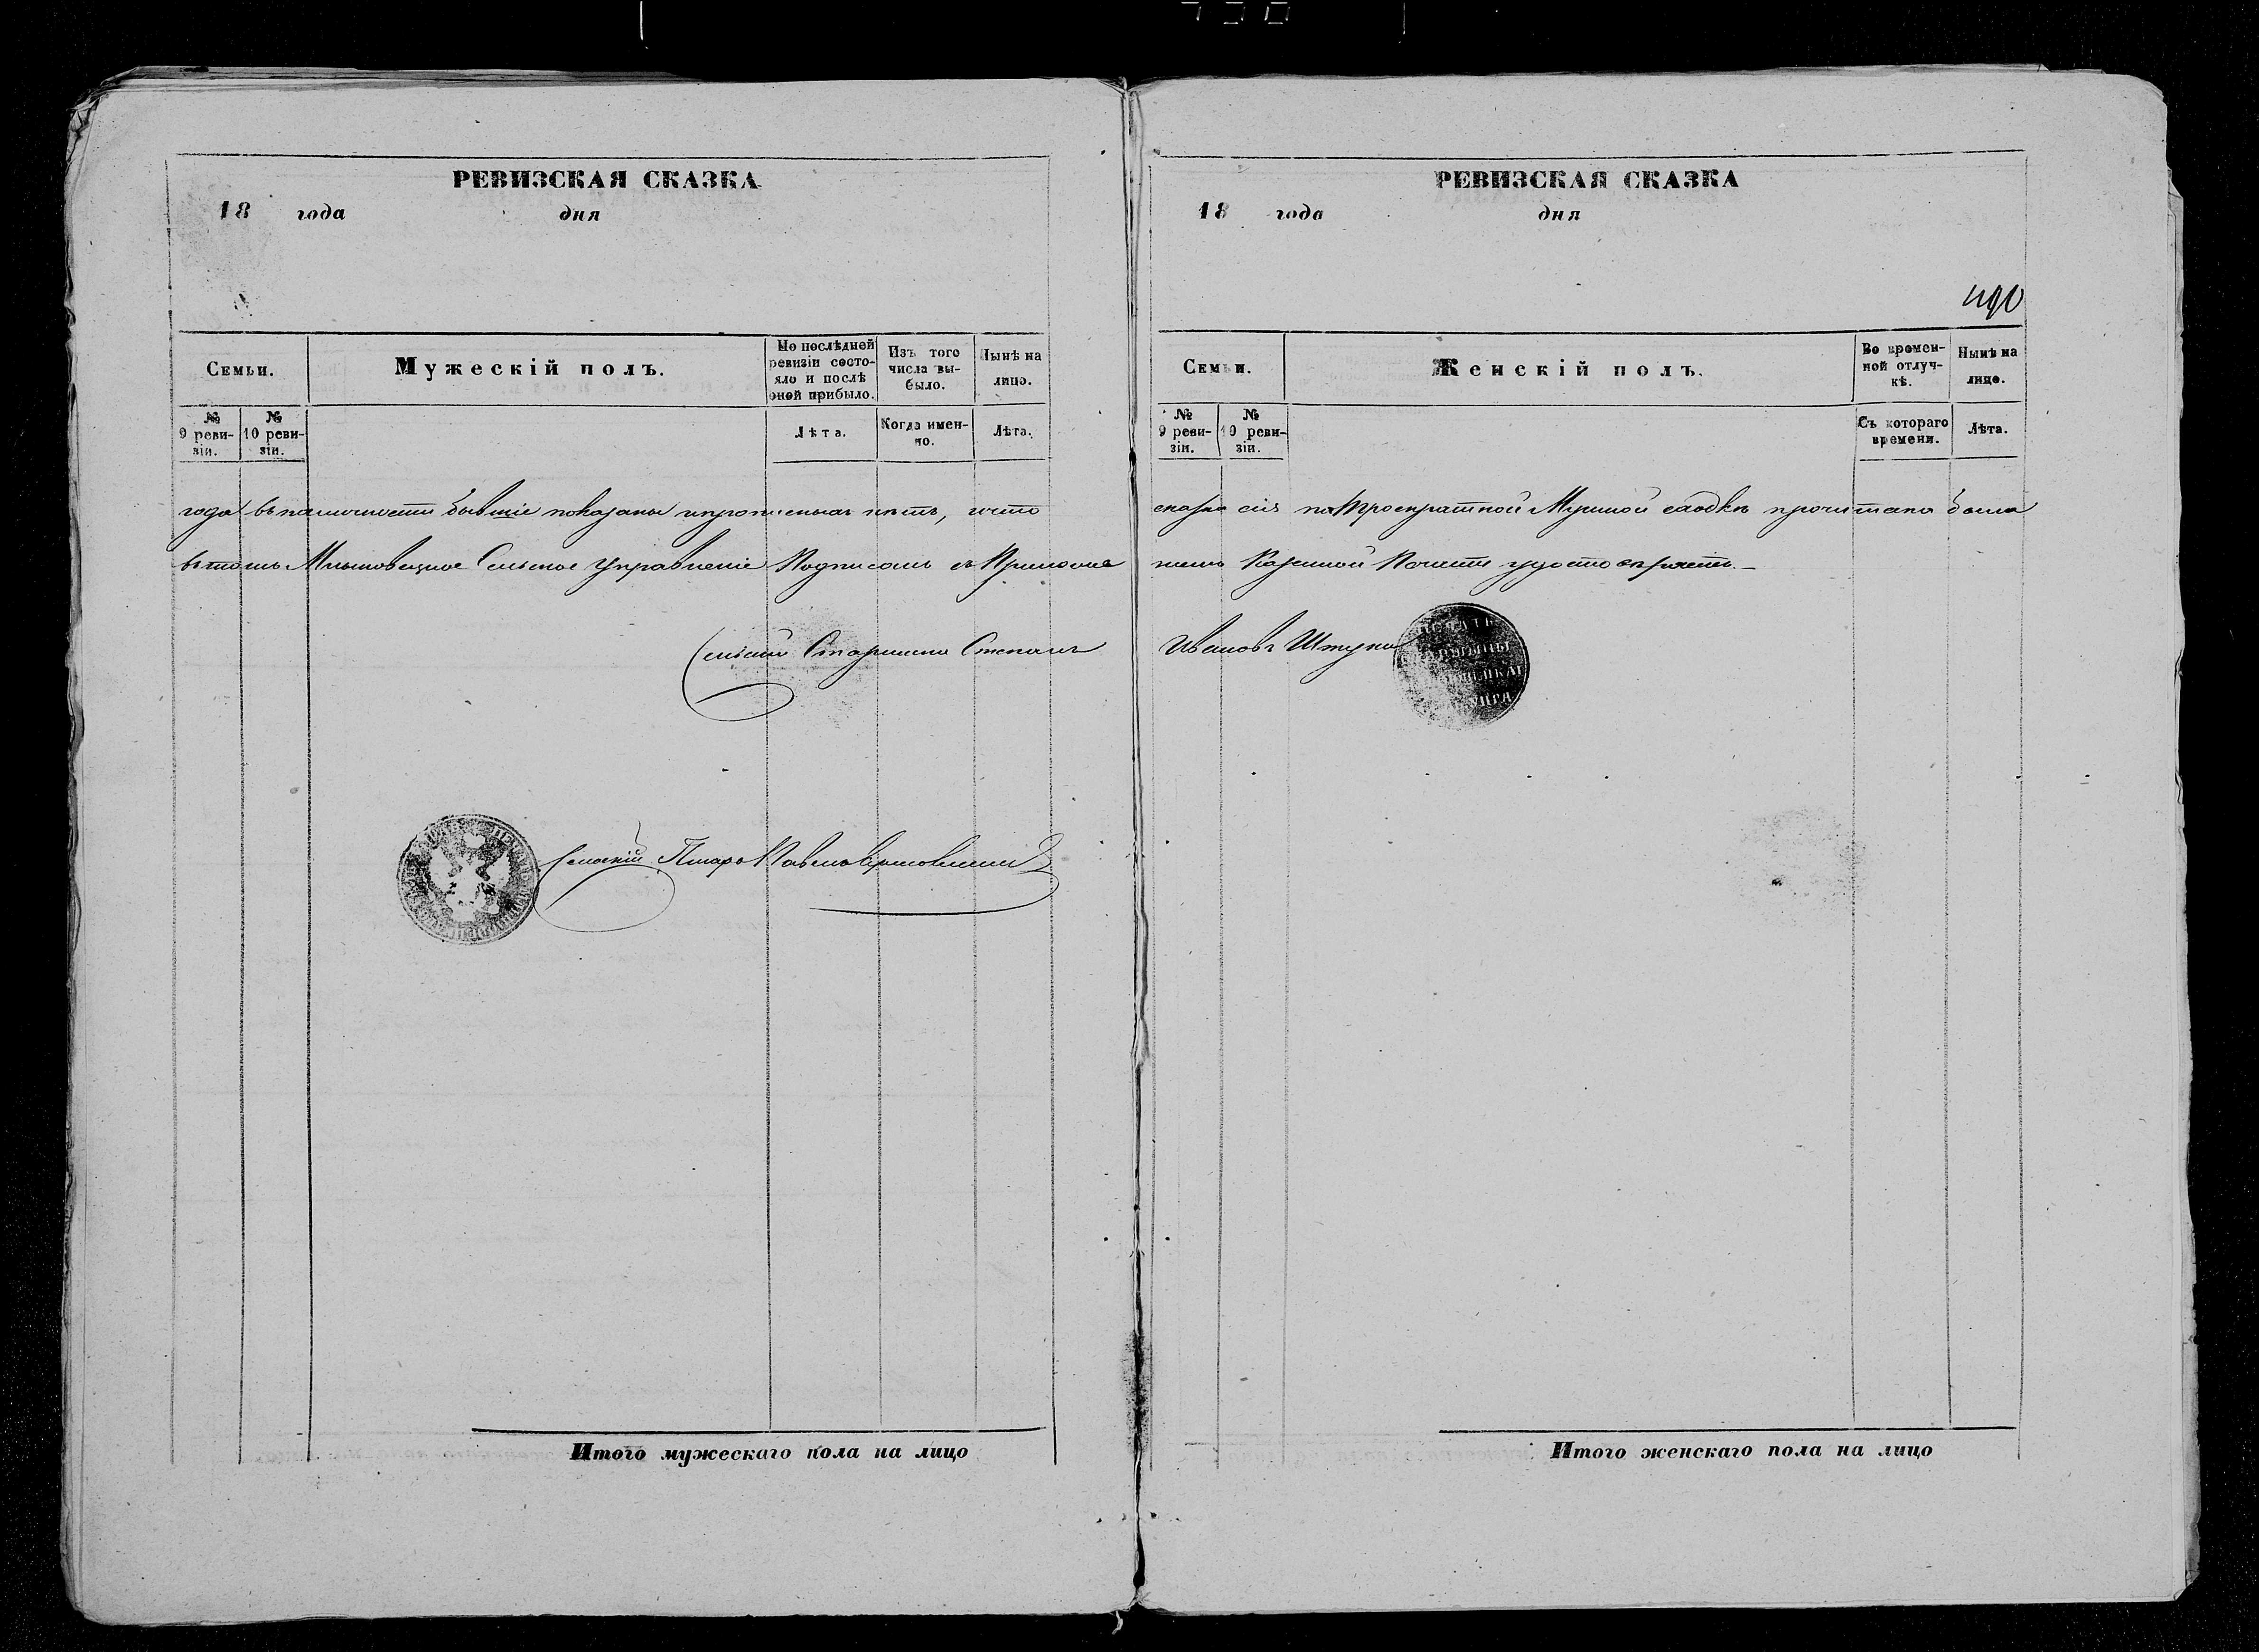 РЕВИЗСКАЯ СКАЗКА
18 года дня
Семьи.
Мужескій полъ.
По послѣдней ревизіи состояло и послѣ оной прибыло.
Изъ того числа выбыло.
Нынѣ на лицо.
№ 9 ревизіи.
№ 10 ревизіи.
Лѣта.
Когда именно.
Лѣта.
года въ наличности бывшіе показаны и прописныхъ нѣтъ, что
въ томъ Сельское Управленіе Подписомъ съ
Сельскій Старшина Степанъ
Сельскій Писарь
Итого мужескаго пола на лицо
РЕВИЗСКАЯ СКАЗКА
18 года дня
490
Семьи.
Женскій полъ.
Во временной отлучкѣ.
Нынѣ на лицо.
№ 9 ревизіи.
№ 10 ревизіи.
Съ котораго времени.
Лѣта.
сказка сія на прочитана была
Казенной Печати удостовѣряетъ.
Ивановъ
ПЕЧАТЬ
Итого женскаго пола на лицо